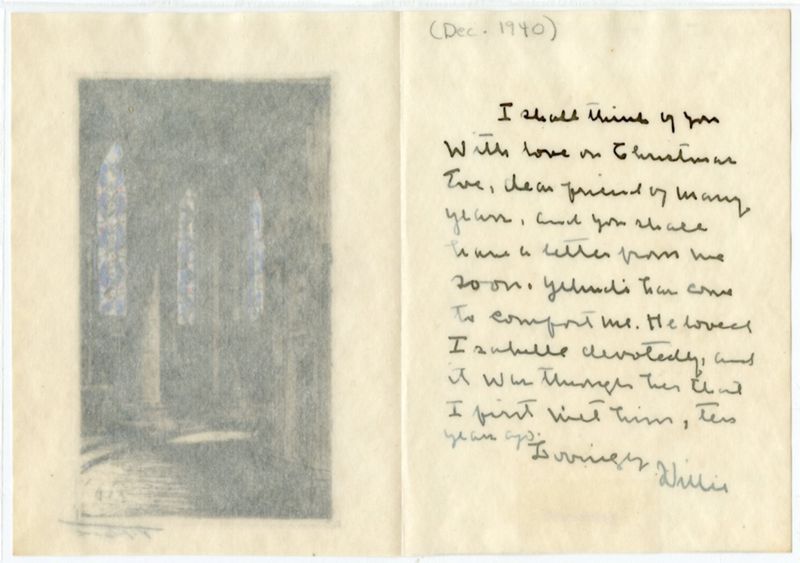 (Dec. 1940)
I shall think of you
With love on Christmas
Eve, dear friend of many
years, and you shall
have a letter from me
soon. Yehudi has come
to comfort me. He loved
Isabelle devotedly, and
it was through her that
I first met him, ten
years ago.
Lovingly
Willie